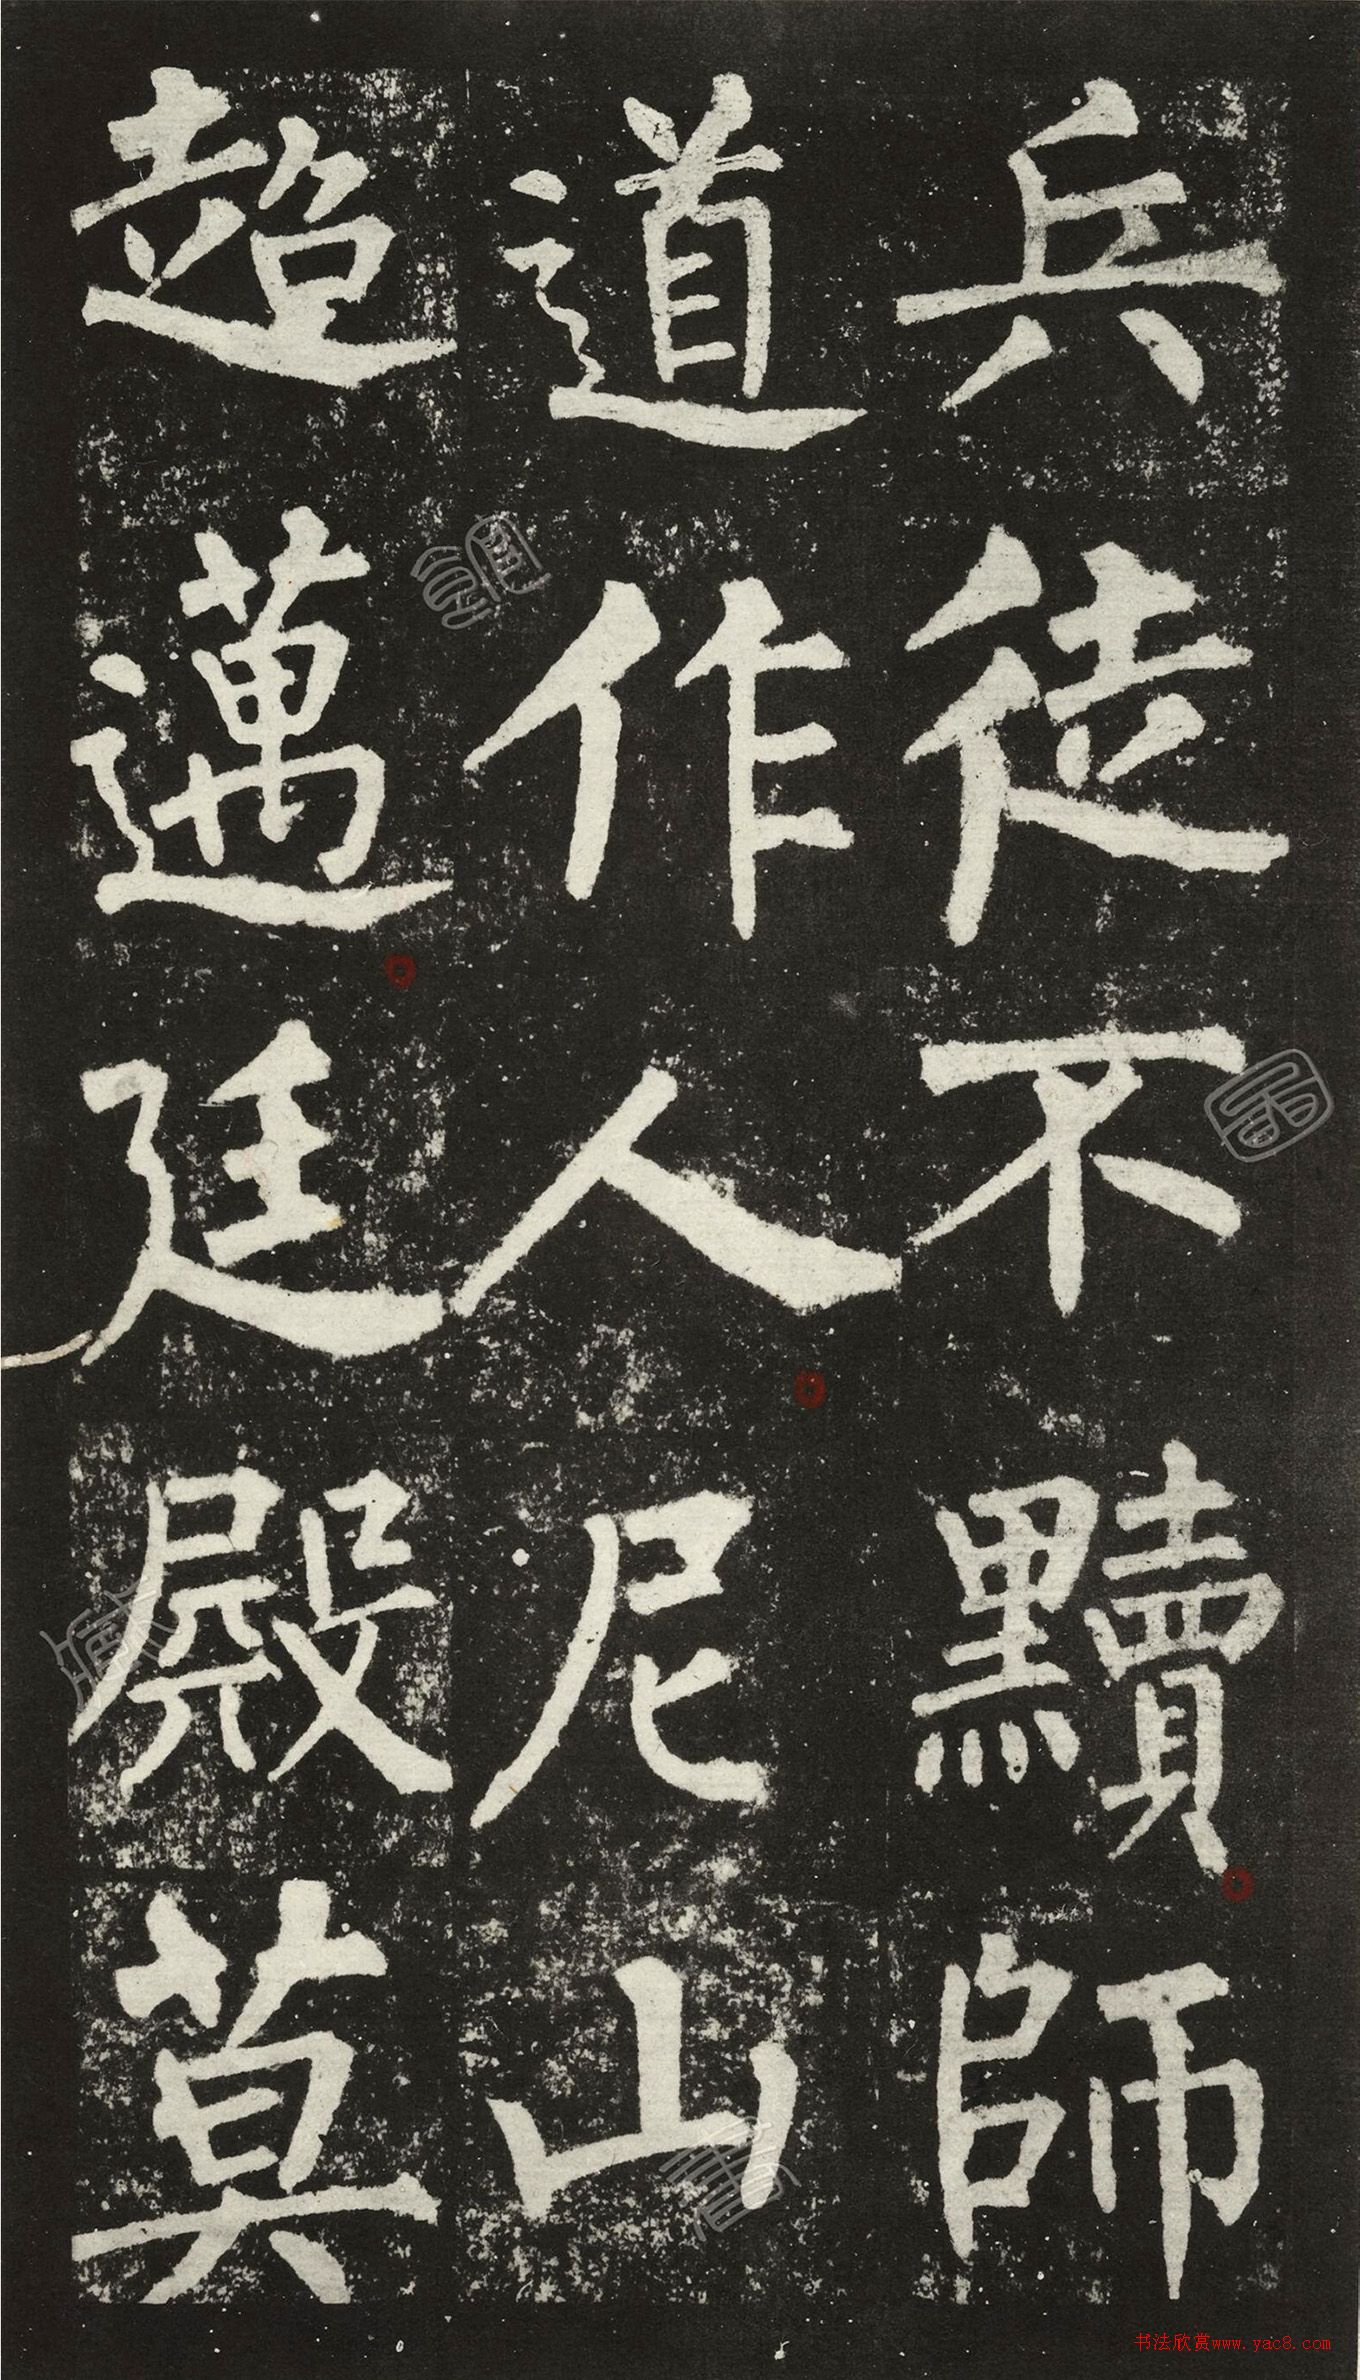 兵徒不黷師
道作人尼山
超邁廷殿莫
书法欣赏www.yac8.com